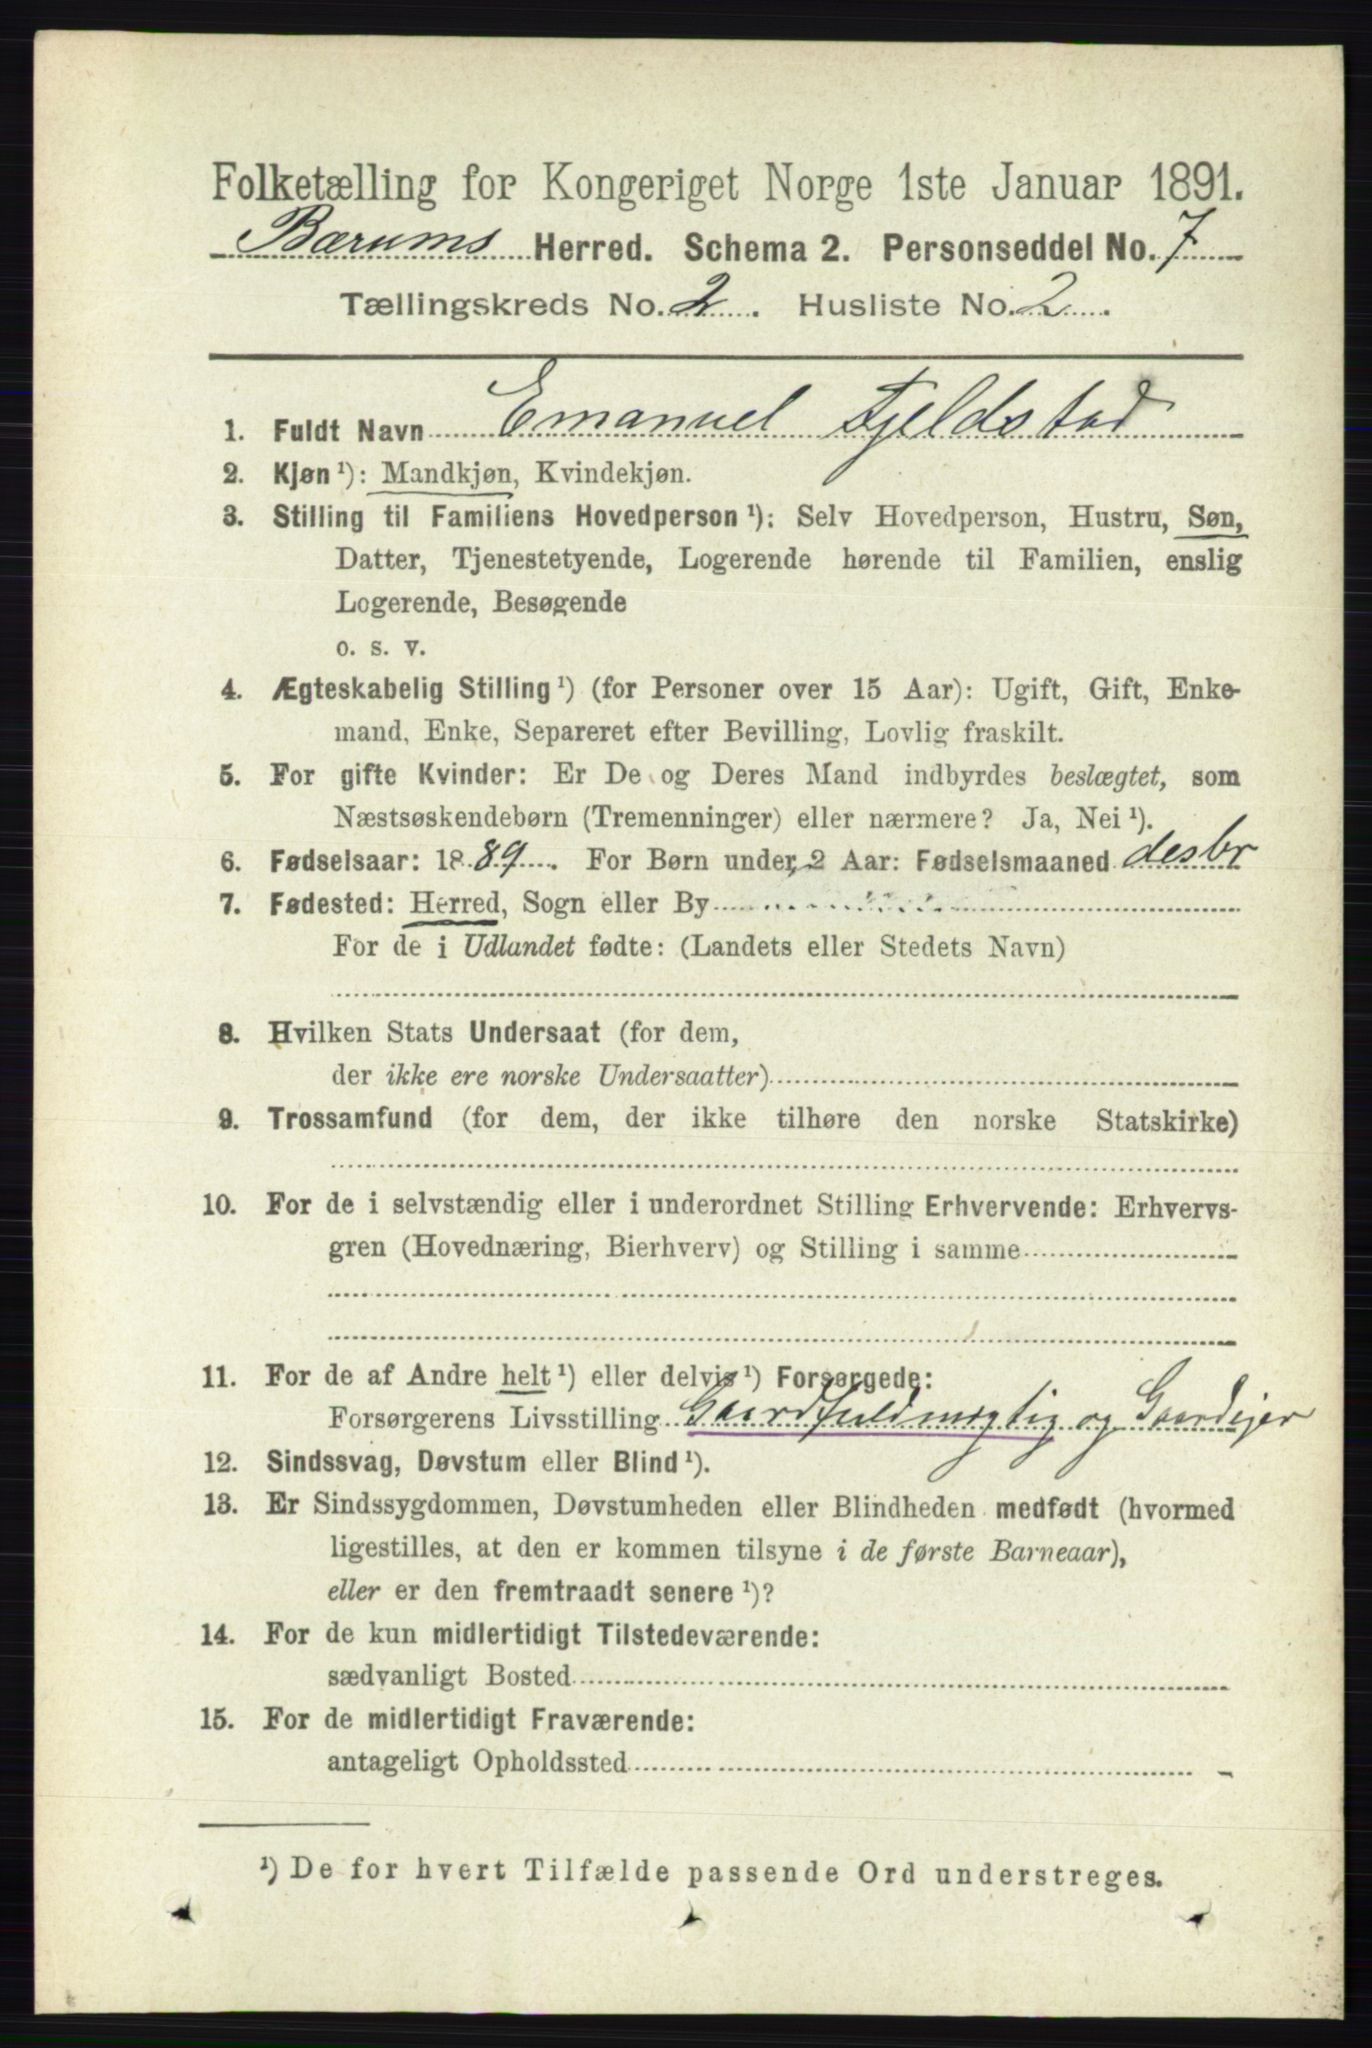 Folketælling for Kongeriget Norge 1ste Januar 1891.
Bærums Herred. Schema 2. Personseddel No. 7
Tællingskreds No. 2. Husliste No. 2.
1. Fuldt Navn Emanuel Fjeldstad
2. Kjøn ¹): Mandkjøn, Kvindekjøn.
3. Stilling til Familiens Hovedperson ¹): Selv Hovedperson, Hustru, Søn,
Datter, Tjenestetyende, Logerende hørende til Familien, enslig
Logerende, Besøgende
o. s. v.
4. Ægteskabelig Stilling ¹) (for Personer over 15 Aar): Ugift, Gift, Enke-
mand, Enke, Separeret efter Bevilling, Lovlig fraskilt.
5. For gifte Kvinder: Er De og Deres Mand indbyrdes beslægtet, som
Næstsøskendebørn (Tremenninger) eller nærmere? Ja, Nei ¹).
6. Fødselsaar: 1889. For Børn under 2 Aar: Fødselsmaaned desbr
7. Fødested: Herred, Sogn eller By
For de i Udlandet fødte: (Landets eller Stedets Navn)
8. Hvilken Stats Undersaat (for dem,
der ikke ere norske Undersaatter)
9. Trossamfund (for dem, der ikke tilhøre den norske Statskirke)
10. For de i selvstændig eller i underordnet Stilling Erhvervende: Erhvervs-
gren (Hovednæring, Bierhverv) og Stilling i samme
11. For de af Andre helt ¹) eller delvis ¹) Forsørgede:
Forsørgerens Livsstilling og Gaardejer
12. Sindssvag, Døvstum eller Blind ¹).
13. Er Sindssygdommen, Døvstumheden eller Blindheden medfødt (hvormed
ligestilles, at den er kommen tilsyne i de første Barneaar),
eller er den fremtraadt senere ¹)?
14. For de kun midlertidigt Tilstedeværende:
sædvanligt Bosted
15. For de midlertidigt Fraværende:
antageligt Opholdssted
¹) De for hvert Tilfælde passende Ord understreges.